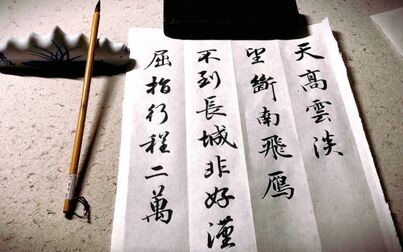 天高雲淡
望斷南飛雁
不到長城非好漢
屈指行程二萬